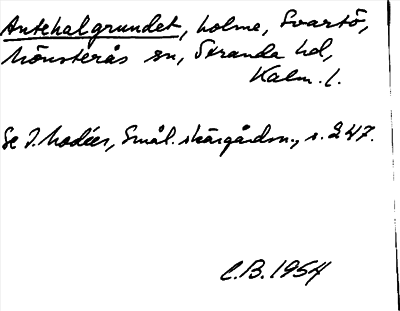 Antehalgrundet, holme, Svartö,
Mönsterås sn, Stranda hd,
Kalm. l.
Se I. Modéer, Smål. skärgårdsn., s. 247.
C.B. 1954